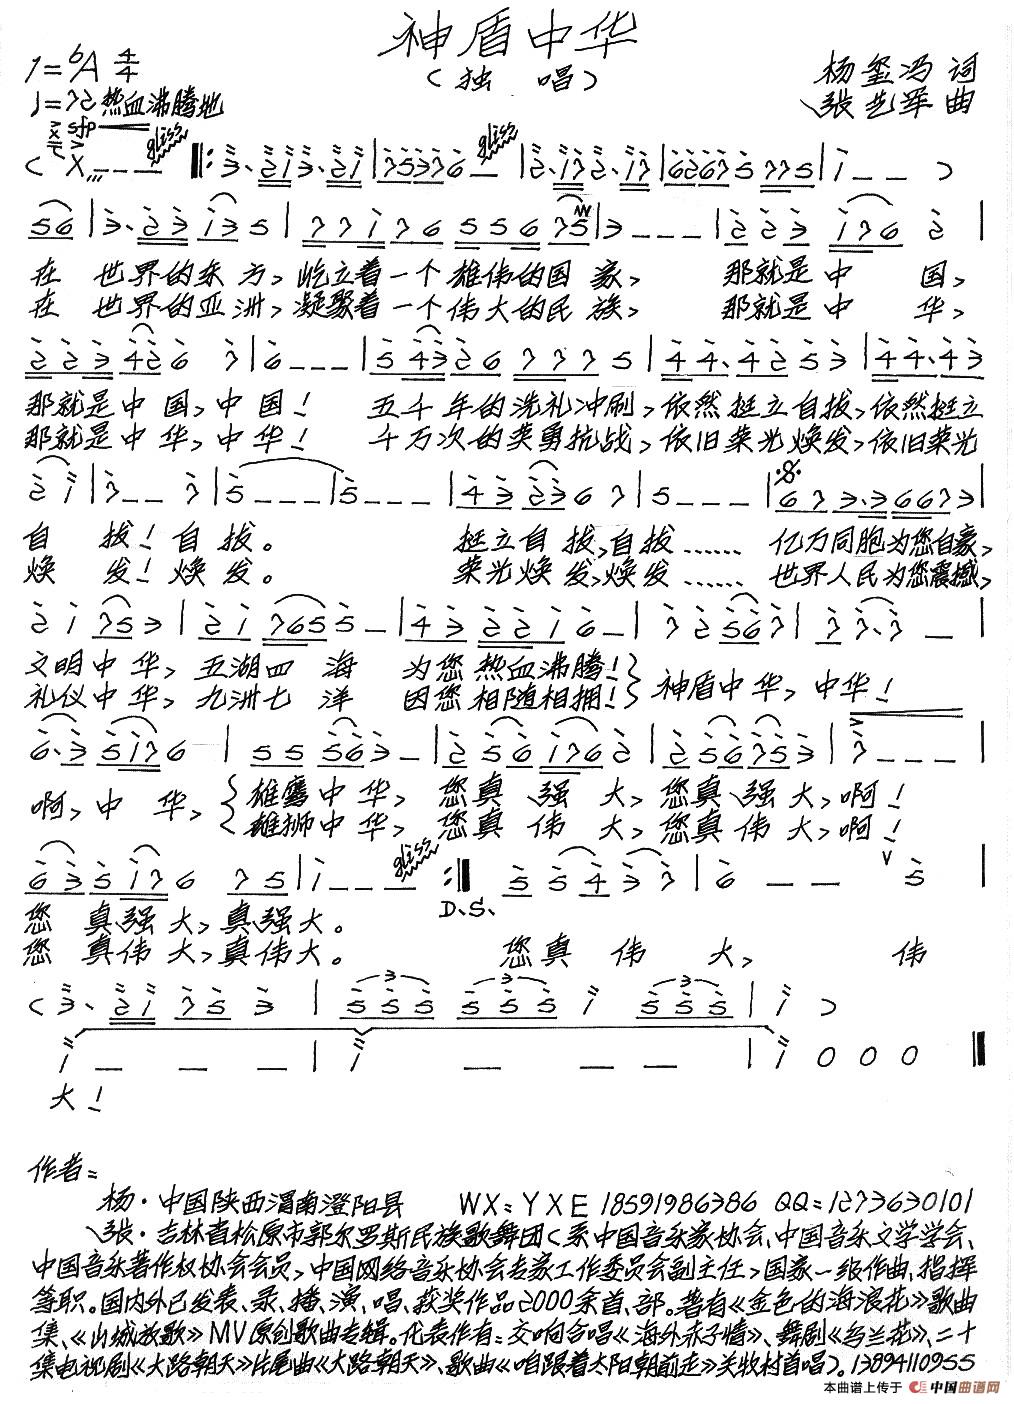 神盾中华
（独 唱）
1=♭A 4/4
杨玺冯 词
张艺军 曲
♩=72 热血沸腾地
sfp
gliss
gliss
在 世界的东方，屹立着一个雄伟的国家， 那就是中 国，
在 世界的亚洲，凝聚着一个伟大的民族， 那就是中 华，
那就是中国，中国！ 五千年的洗礼冲刷，依然挺立自拔，依然挺立
那就是中华，中华！ 千万次的英勇抗战，依旧荣光焕发，依旧荣光
自 拔！自拔。 挺立自拔，自拔…… 亿万同胞为您自豪，
焕 发！焕发。 荣光焕发，焕发…… 世界人民为您震撼，
文明中华，五湖四 海 为您热血沸腾！
礼仪中华，九洲七 洋 因您相随相拥！
神盾中华，中华！
啊，中 华，
雄鹰中华，您真 强 大，您真强大，啊！
雄狮中华，您真 伟 大，您真伟大，啊！
gliss
D.S.
您 真强大，真强大。
您 真伟大，真伟大。 您真 伟 大， 伟
大！
作者：
杨·中国陕西渭南澄阳县 WX：YXE 18591986386 QQ=1273630101
张·吉林省松原市郭尔罗斯民族歌舞团（系中国音乐家协会、中国音乐文学学会、
中国音乐著作权协会会员，中国网络音乐协会专家工作委员会副主任，国家一级作曲、指挥
等职。国内外已发表、录、播、演、唱、获奖作品2000余首、部。著有《金色的海浪花》歌曲
集、《山城放歌》MV原创歌曲专辑。代表作有：交响合唱《海外赤子情》、舞剧《乌兰花》、二十
集电视剧《大路朝天》片尾曲《大路朝天》、歌曲《咱跟着太阳朝前走》关牧村首唱）。13894110955
本曲谱上传于 中国曲谱网